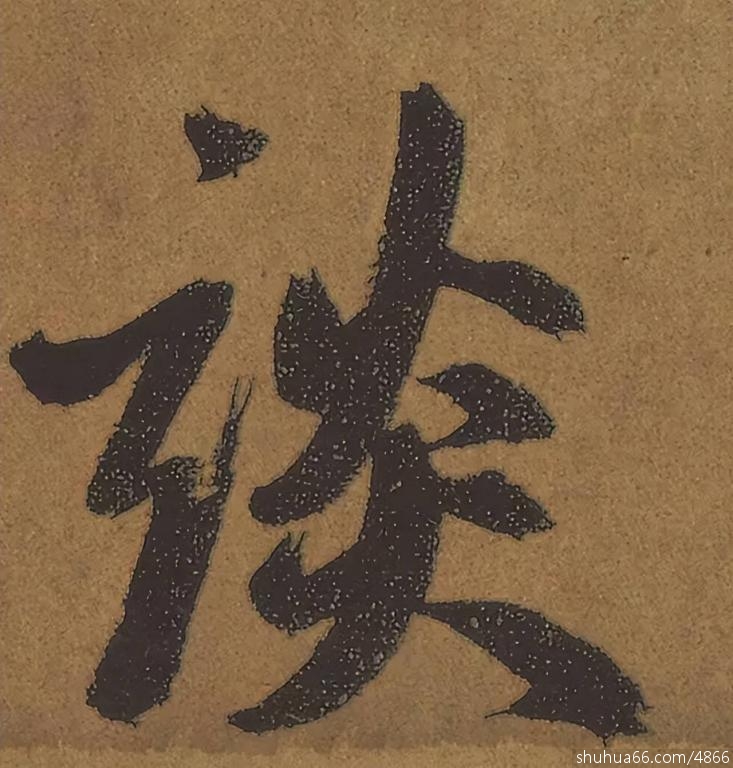 談
shuhua66.com/4866